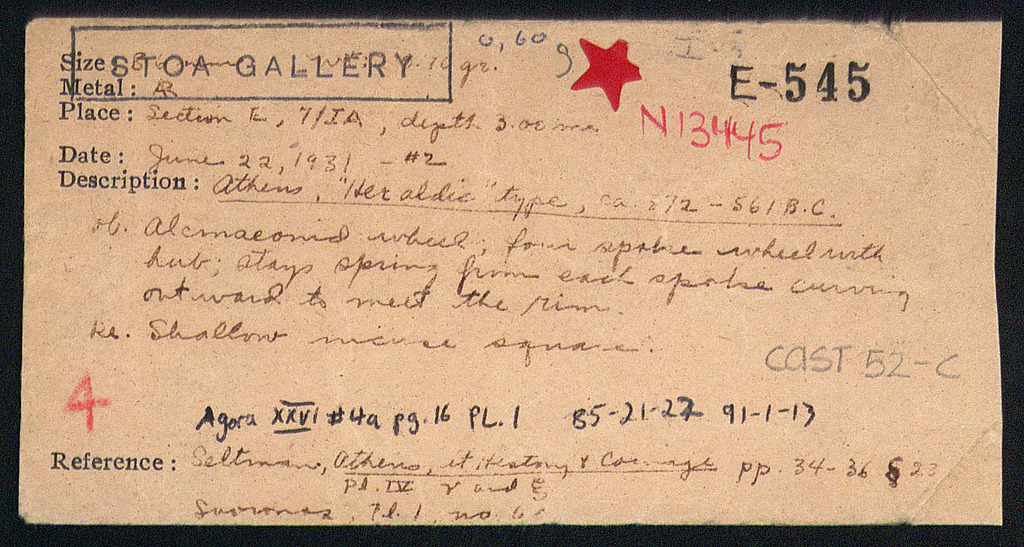 0,60 g
E-545
STOA GALLERY
Size : gr.
Metal : AR
Place : Section E, 7/IA, depth 3.00 m.
N13445
Date : June 22, 1931 - #2
Description : Athens, "Heraldic" type, ca. 572 - 561 B.C.
ob. Alcmaeonid wheel; four spoke wheel with
hub; stays spring from each spoke curving
outward to meet the rim.
Re. Shallow incuse square.
CAST 52-C
4
Agora XXVI #4a pg. 16 PL. 1 85-21-27 91-1-13
Reference : Seltman, Athens, it History & Coinage pp. 34-36 § 23
Pl. IV γ and ξ
Svoronos, Pl. 1, no. 6